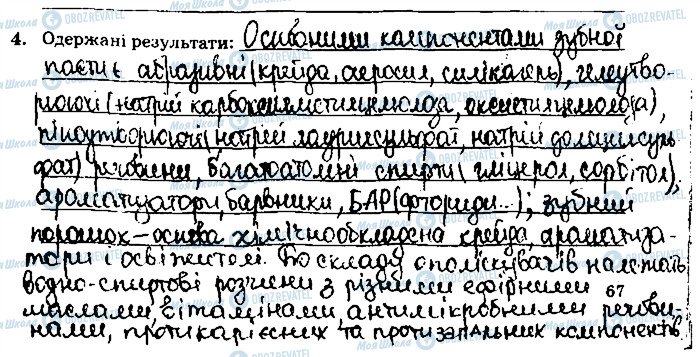 4. Одержані результати: Основними компонентами зубної
пасти є абразивні (крейда, аеросил, силікагель), гелеутво-
рюючі (натрій карбоксиметилцелюлоза, оксиетилцелюлоза),
піноутворюючі (натрій лаурилсульфат, натрій доцилсуль
фат) речовини, багатоатомні спирти (гліцерол, сорбітол),
ароматизатори, барвники, БАР (фториди...); зубний
порошок – основа хімічнообкладена крейда, ароматиза-
тори і освіжителі. До складу ополіскувачів належать
водно-спиртові розчини з різними ефірними
маслами, вітамінами, антимікробними речови-
нами, протикарієсних та протизапальних компонентів
67